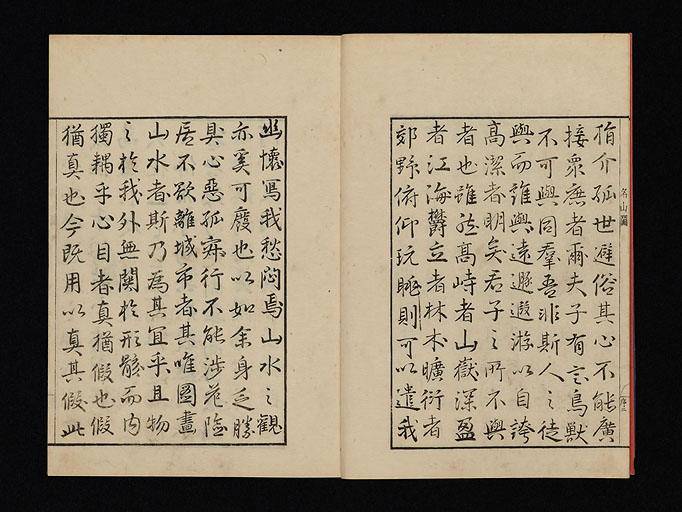 狷介孤世避俗其心不能廣
接衆庶者爾夫子有言鳥獸
不可與同羣吾非斯人之徒
與而誰與遠遯遐游以自誇
高潔者明矣君子之所不與
者也雖然高峙者山嶽深盈
者江海欝立者林木曠衍者
郊野俯仰玩眺則可以遣我
名山圖
序三
幽懷寫我愁悶焉山水之觀
亦奚可廢也以如余身乏勝
具心惡孤寂行不能涉危險
居不欲離城市者其唯圖畫
山水者斯乃為其宜乎且物
之於我外無關於形骸而内
獨耦乎心目者真猶假也假
猶真也今既用以真其假此